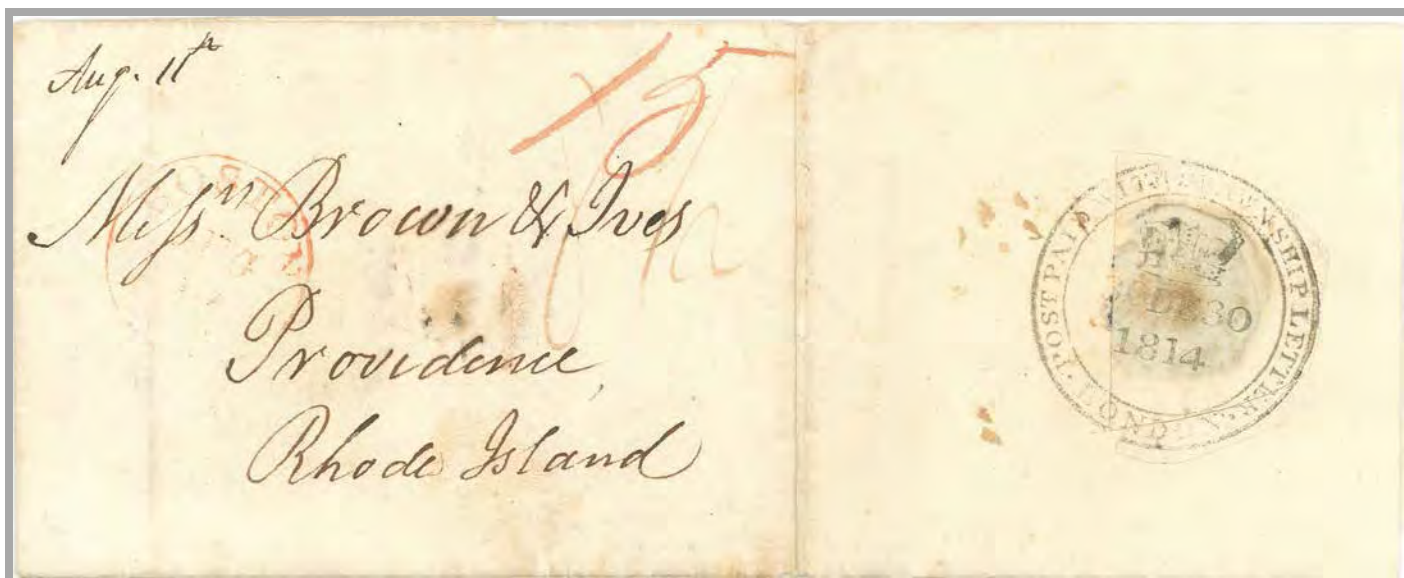 Aug. 11th
15
BOSTON
Messrs Brown & Ives
Providence,
Rhode Island
POST PAID WITHDRAWN SHIP LETTER · LONDON ·
DE 30
1814